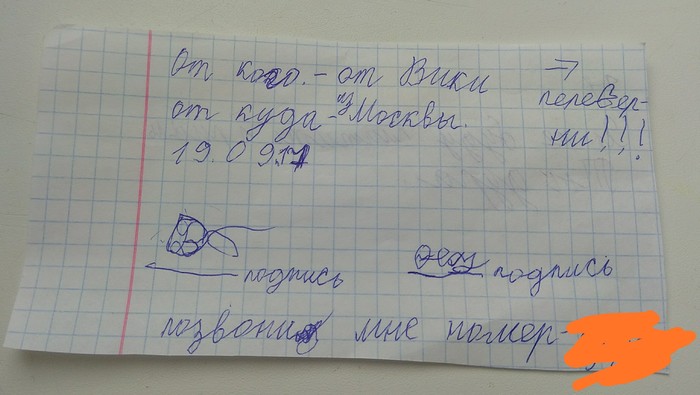 От кого. - от Вики
от куда - из Москвы.
19.09.17
→
перевер-
ни!!!
подпись
подпись
позвони мне номер-